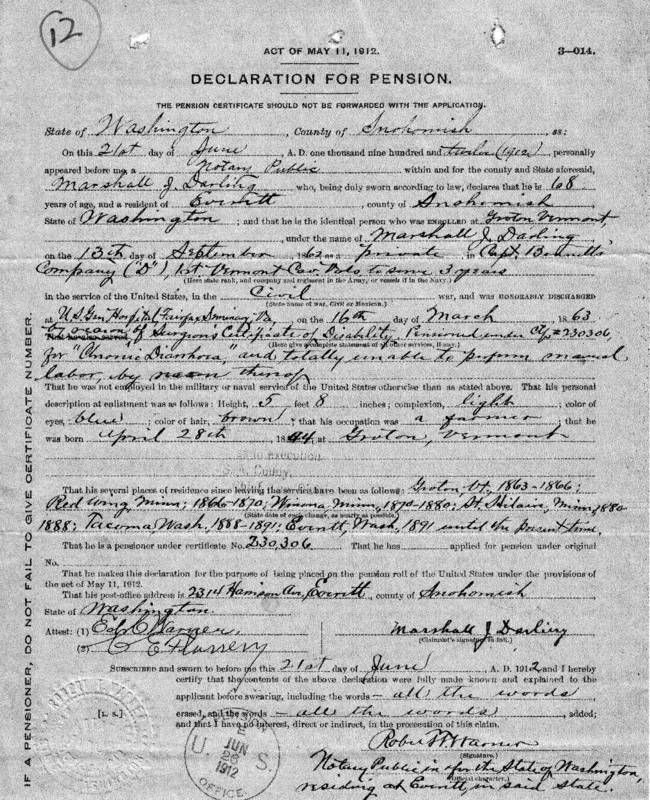 12
ACT OF MAY 11, 1912.
3—014.
DECLARATION FOR PENSION.
THE PENSION CERTIFICATE SHOULD NOT BE FORWARDED WITH THE APPLICATION.
State of Washington, County of Snohomish, ss:
On this 21st day of June, A. D. one thousand nine hundred and twelve (1912) personally
appeared before me, a Notary Public within and for the county and State aforesaid,
Marshall J. Darling who, being duly sworn according to law, declares that he is 68
years of age, and a resident of Everett county of Snohomish
State of Washington; and that he is the identical person who was ENROLLED at Groton Vermont,
under the name of Marshall J. Darling,
on the 13th day of September, 1862 as a private, in Capt. Bennetts
Company ("D"), 1st. Vermont Cav. Vols, to serve 3 years
(Here state rank, and company and regiment in the Army, or vessels if in the Navy.)
in the service of the United States, in the Civil war, and was HONORABLY DISCHARGED
(State name of war, Civil or Mexican.)
at U.S. Gen. Hospital Fairfax Seminary, Va, on the 16th day of March 1863.
by reason of Surgeon's Certificate of Disability. Pensioned under Ctf # 230306,
(Here give a complete statement of all other services, if any.)
for "Chronic Diarrhoea," and totally unable to perform manual
labor, by thereof
That he was not employed in the military or naval service of the United States otherwise than as stated above. That his personal
description at enlistment was as follows: Height, 5 feet 8 inches; complexion, light; color of
eyes, blue; color of hair, brown; that his occupation was a farmer; that he
was born April 28th, 1844 at Groton, Vermont
That his several places of residence since leaving the service have been as follows: Groton, Vt, 1863-1866;
Red Wing Minn; 1866-1870; Winona, Minn, 1870-1880; St. Hilair, Minn, 1880
(State date of each change, as nearly as possible.)
1888; Tacoma, Wash. 1888-1891; Everett, Wash, 1891 until the present time.
That he is a pensioner under certificate No. 230,306. That he has applied for pension under original
No.
That he makes this declaration for the purpose of being placed on the pension roll of the United States under the provisions of
the act of May 11, 1912.
That his post-office address is 2314 Harrison Av, Everett, county of Snohomish
State of Washington.
Attest: (1) Ed. C. Warner, Marshall J. Darling
(Claimant's signature in full.)
(2)
SUBSCRIBED and sworn to before me this 21st day of June A. D. 1912 and I hereby
certify that the contents of the above declaration were fully made known and explained to the
applicant before swearing, including the words — all the words
erased, and the words — all the words, added;
and that I have no interest, direct or indirect, in the prosecution of this claim.
[L. S.]
Robert W. Warner
(Signature.)
Notary Public in & for the State of Washington,
(Official character.)
residing at Everett in said state.
U. S.
JUN
26
1912
OFFICE.
IF A PENSIONER, DO NOT FAIL TO GIVE CERTIFICATE NUMBER.